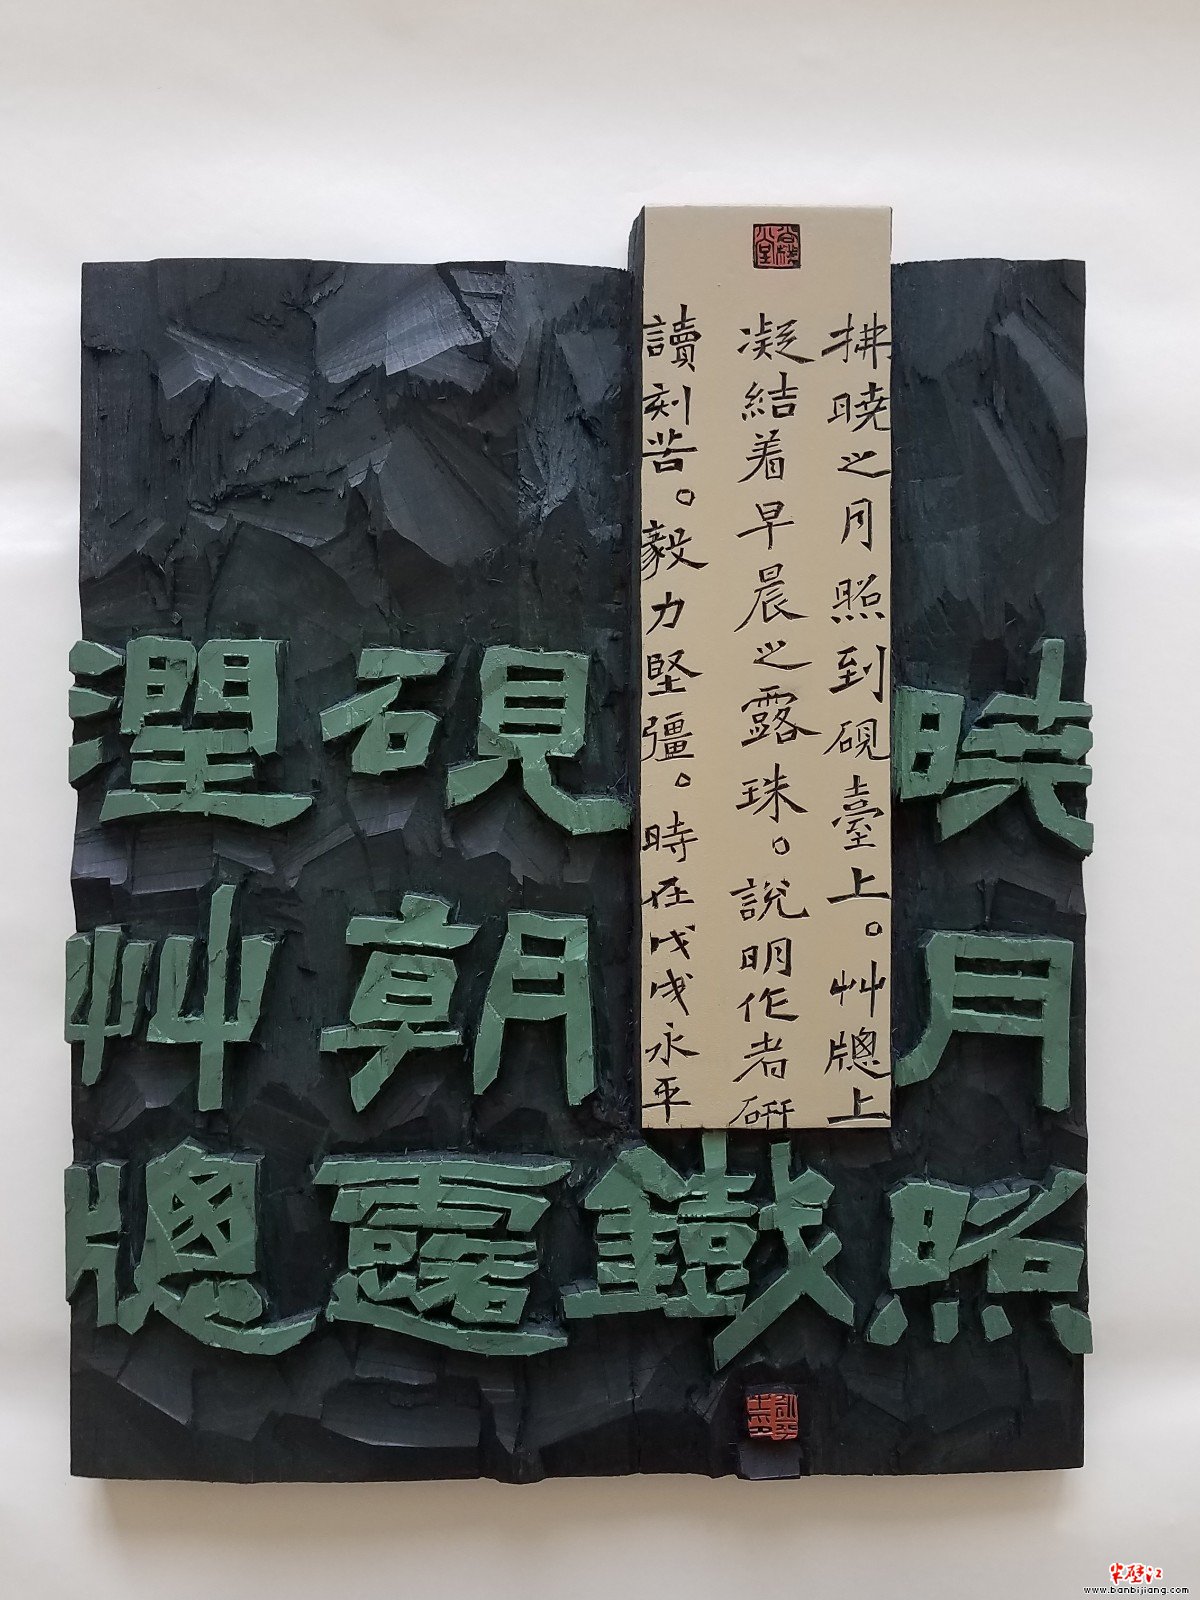 曉月照
鐵
硯朝露
潤艸牕
拂曉之月照到硯臺上。艸牕上
凝結着早晨之露珠。説明作者研
讀刻苦。毅力堅彊。時在戊戌永平
半壁江
www.banbijiang.com